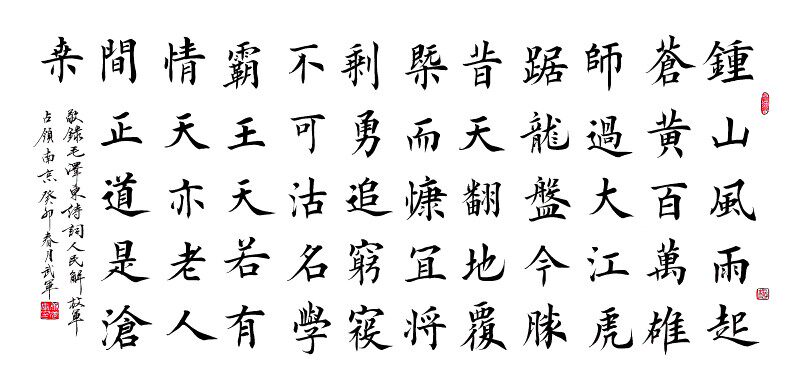 鍾山風雨起
蒼黃百萬雄
師過大江虎
踞龍盤今勝
昔天翻地覆
槩而慷冝将
剩勇追窮寇
不可沽名學
霸王天若有
情天亦老人
間正道是滄
桒
敬錄毛澤東詩詞人民解放軍
占領南京癸卯春月武軍